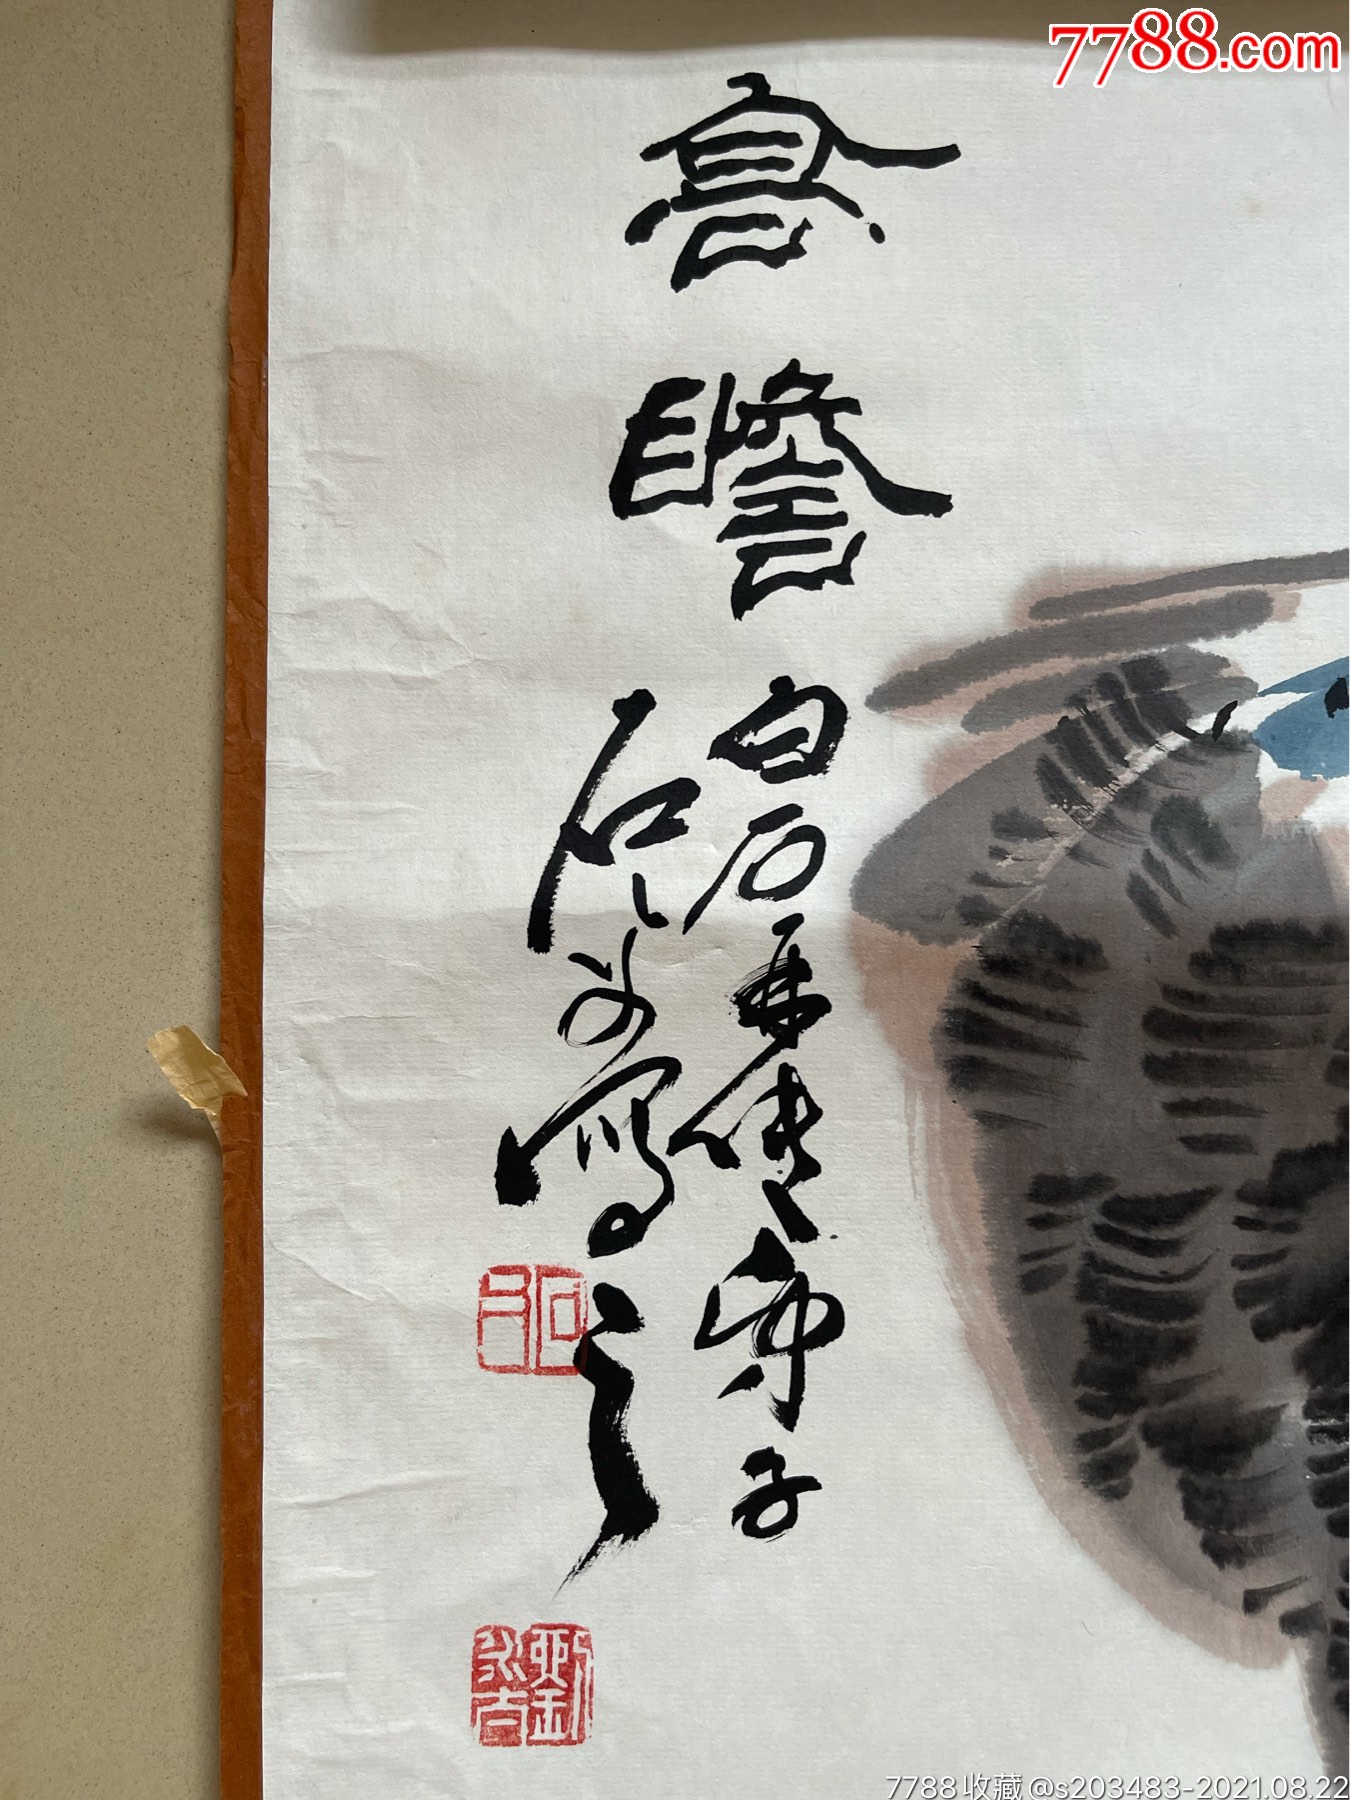 7788.com
高瞻
白石再傳弟子
石寫之
7788收藏@s203483-2021.08.22